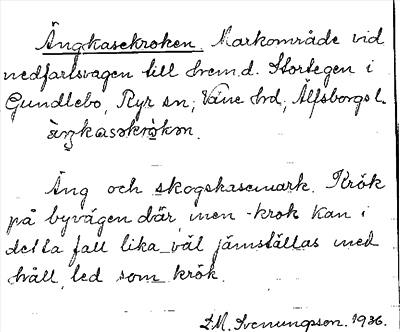 Ängkasekroken. Markområde vid
nedfartsvägen till hemmd. Stortegen i
Gundlebo, Ryr sn; Väne hrd; Älfsborgs l.
äŋkasəkrokən.
Äng och skogskasemark. Krök
på byvägen där, men -krok kan i
detta fall lika väl jämställas med
håll, led som krök.
L.M. Svenungsson. 1936.